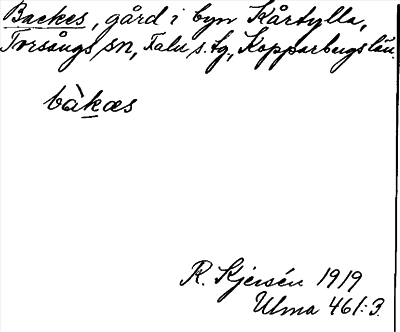 Backes, gård i byn Kårtylla,
Torsångs sn, Falu s. tg, Kopparbergs län.
bàkæs
R. Kjersén 1919
Ulma 461:3.